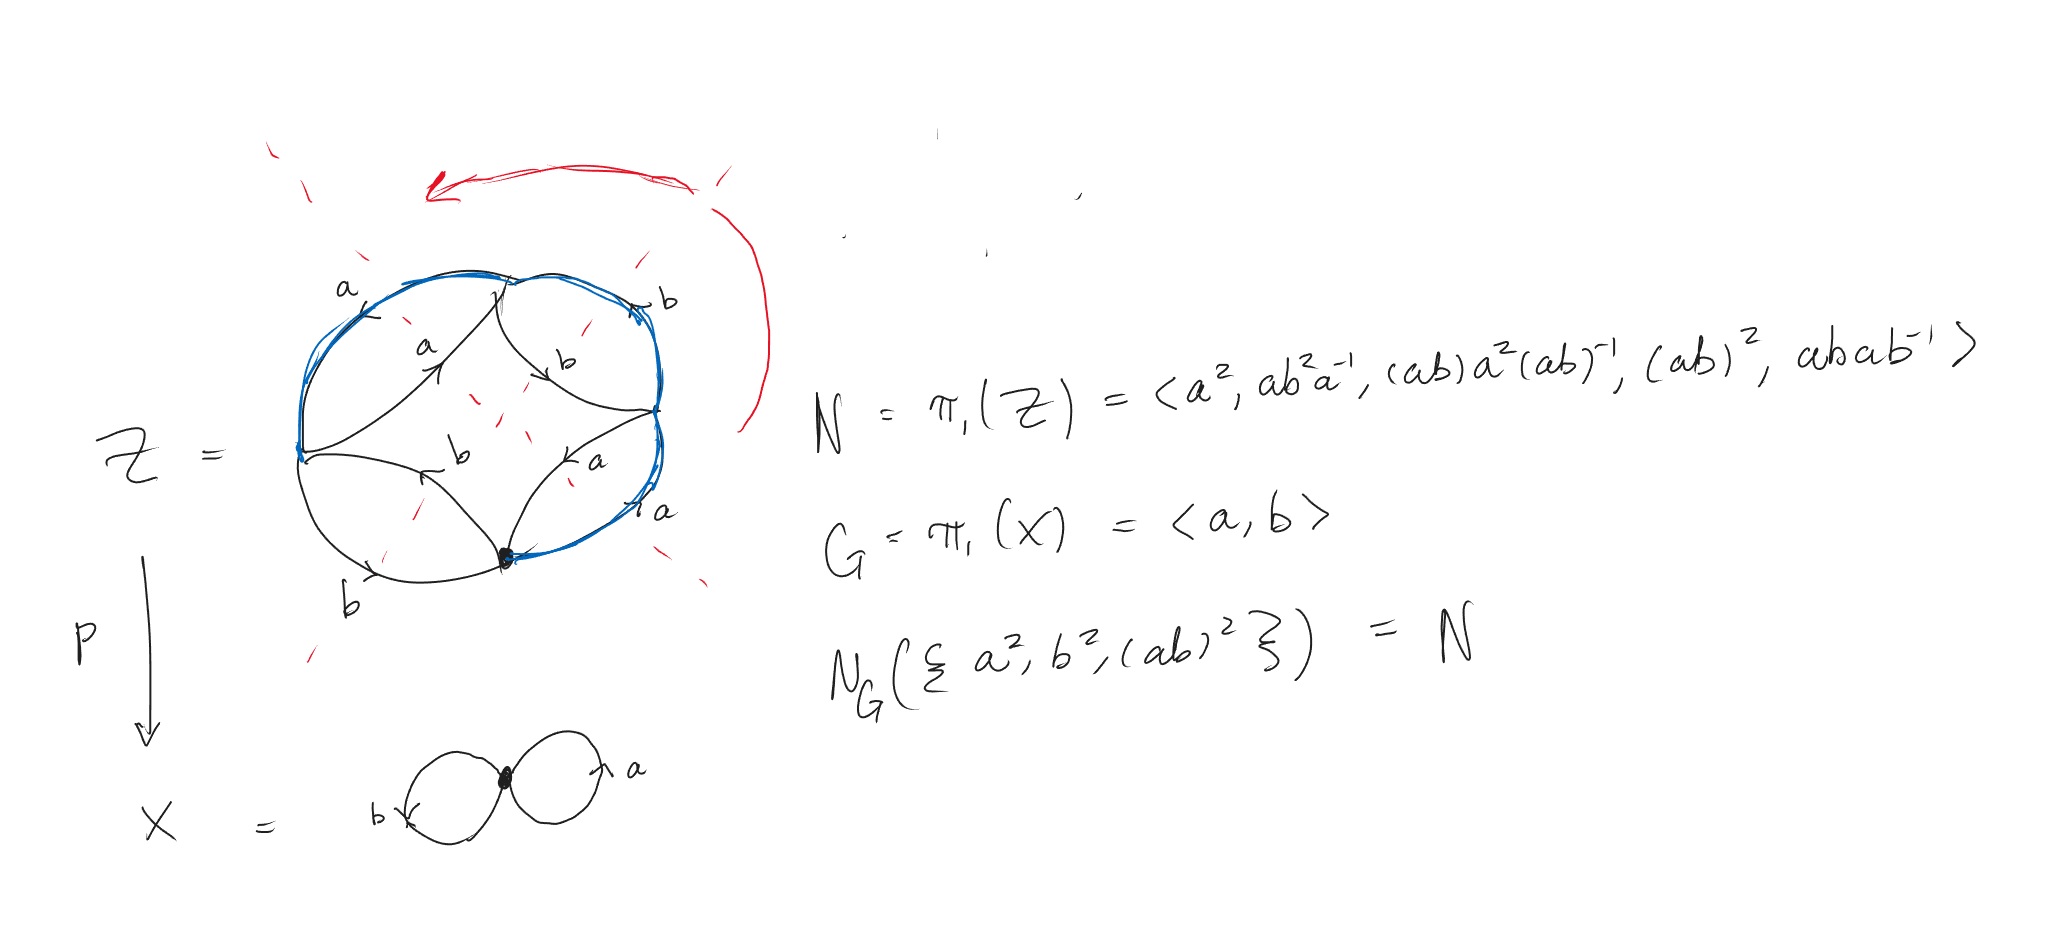 a
b
a
b
Z =
b
a
a
b
N = π₁(Z) = <a², ab²a⁻¹, (ab)a²(ab)⁻¹, (ab)², abab⁻¹>
G = π₁(X) = <a, b>
N_G({a², b², (ab)²}) = N
P
X =
b
a